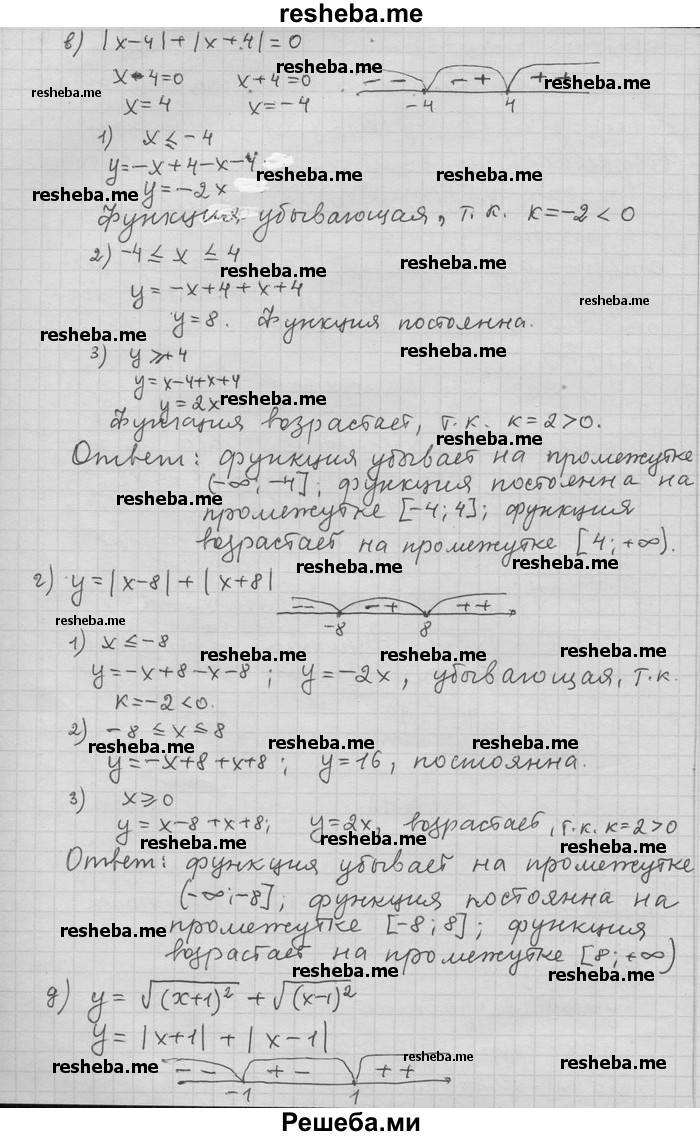 resheba.me
в) |x-4|+|x+4|=0
resheba.me resheba.me
x-4=0 x+4=0 - - - + + +
resheba.me resheba.me
x=4 x=-4 -4 4
1) x≤-4
y=-x+4-x-4
resheba.me resheba.me
resheba.me y=-2x
Функция убывающая, т.к. k=-2<0
2) -4≤x≤4
resheba.me resheba.me
y=-x+4+x+4
resheba.me
y=8. Функция постоянна.
resheba.me resheba.me
3) y≥+4
y=x-4+x+4
y=2x resheba.me
Функция возрастает, т.к. k=2>0.
resheba.me
Ответ: функция убывает на промежутке
(-∞;-4]; функция постоянна на
resheba.me resheba.me
промежутке [-4;4]; функция
возрастает на промежутке [4;+∞).
resheba.me resheba.me
г) y=|x-8|+|x+8|
- - - + + +
resheba.me -8 8
1) x≤-8
resheba.me resheba.me resheba.me
y=-x+8-x-8; y=-2x, убывающая, т.к.
k=-2<0.
2) -8≤x≤8
resheba.me resheba.me resheba.me
y=-x+8+x+8; y=16, постоянна.
3) x≥0
y=x-8+x+8; y=2x, возрастает, т.к. k=2>0
resheba.me resheba.me resheba.me
Ответ: функция убывает на промежутке
(-∞;-8]; функция постоянна на
resheba.me промежутке [-8;8]; функция
resheba.me
возрастает на промежутке [8;+∞)
resheba.me resheba.me
д) y=√(x+1)² + √(x-1)²
y=|x+1|+|x-1|
resheba.me resheba.me resheba.me
- - + - + +
-1 1
Решеба.ми